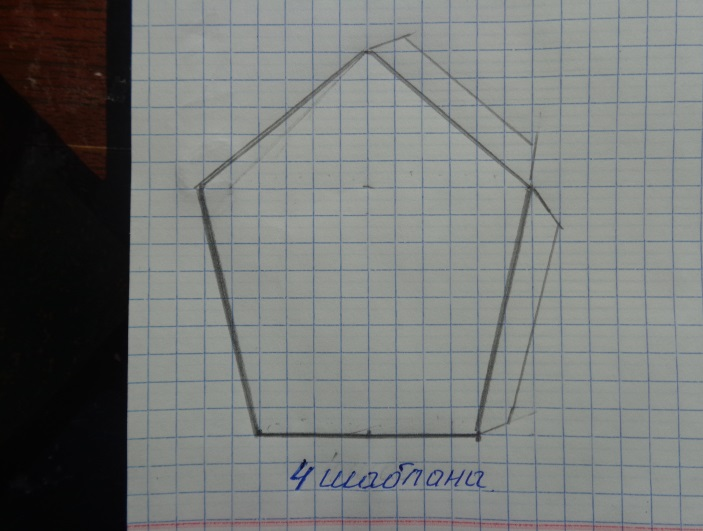 4 шаблона